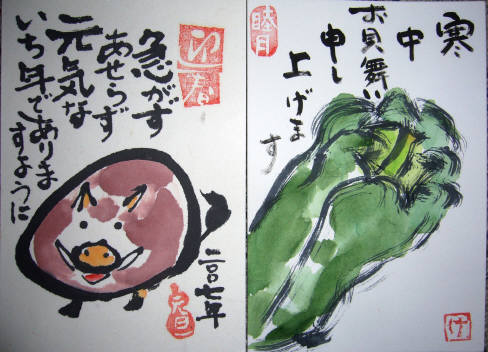 迎春
急がす
あせらず
元気な
いち年でありま
すように
二〇〇七年
元旦
睦月
寒
中
お見舞い
申し
上げます